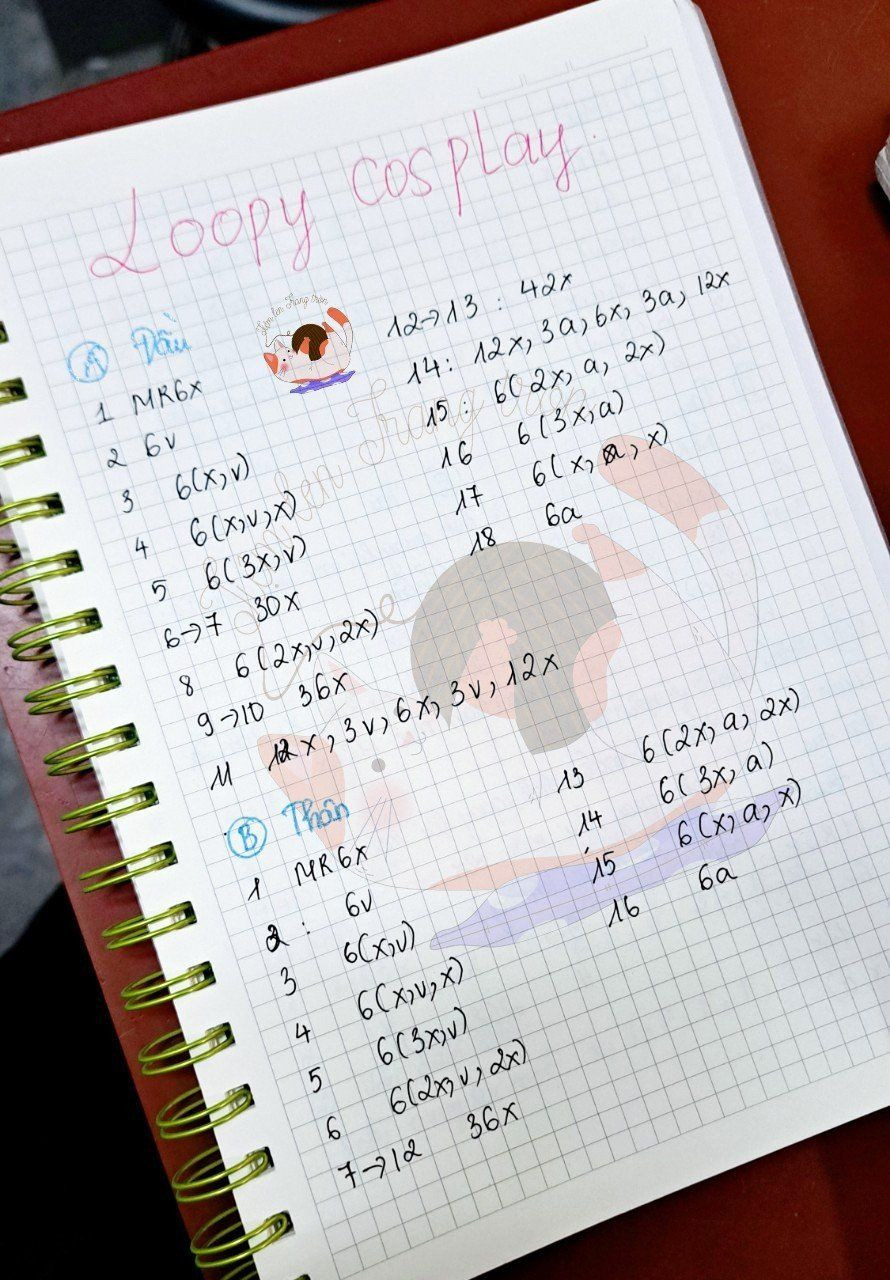 Loopy cosplay.
Tiệm len Trang tròn
Tiệm len Trang tròn
A Đầu
1 MR6x
2 6v
3 6(x,v)
4 6(x,v,x)
5 6(3x,v)
6→7 30x
8 6(2x,v,2x)
9→10 36x
11 12x, 3v, 6x, 3v, 12x
12→13 : 42x
14: 12x, 3a, 6x, 3a, 12x
15: 6(2x, a, 2x)
16 6(3x,a)
17 6(x, a, x)
18 6a
B Thân
1 MR6x
2: 6v
3 6(x,v)
4 6(x,v,x)
5 6(3x,v)
6 6(2x,v,2x)
7→12 36x
13 6(2x, a, 2x)
14 6(3x, a)
15 6(x, a, x)
16 6a